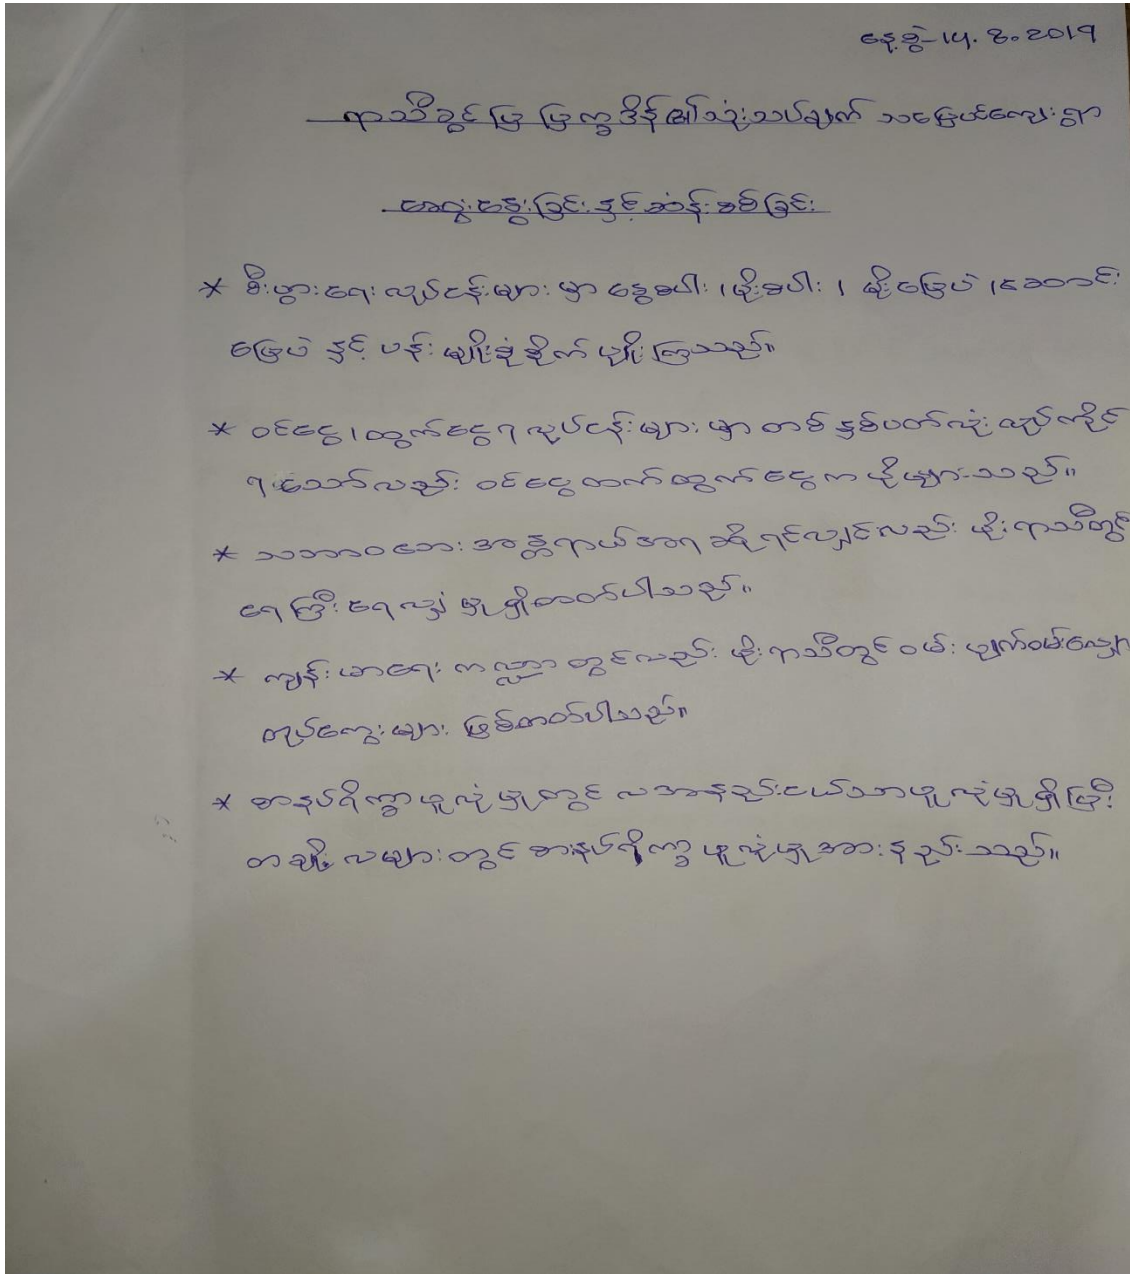 နေ့စွဲ-၁၄.8.2019
ရာသီခွင်ပြ ပြက္ခဒိန်၏သုံးသပ်ချက် သပြေယ်ကျေးရွာ
ဆွေးနွေးခြင်းနှင့်ဆန်းစစ်ခြင်း
* စီးပွားရေးလုပ်ငန်းများမှာ နွေစပါး၊မိုးစပါး၊ မိုးမြေပဲ၊ဆောင်း
မြေပဲ နှင့် ပန်းမျိုးစုံစိုက်ပျိုးကြသည်။
* ဝင်ငွေ၊ထွက်ငွေရလုပ်ငန်းများမှာ တစ်နှစ်ပတ်လုံးလုပ်ကိုင်
ရသော်လည်း ဝင်ငွေထက်ထွက်ငွေက ပိုများသည်။
* သဘာဝဘေးအန္တရာယ်အရ ဆိုရင်လျှင်လည်း မိုးရာသီတွင်
ရေကြီးရေလျှံမှုရှိတတ်ပါသည်။
* ကျန်းမာရေးကဏ္ဍတွင်လည်း မိုးရာသီတွင်ဝမ်းပျက်ဝမ်းလျှော
တုပ်ကွေးများ ဖြစ်တတ်ပါသည်။
* စားနပ်ရိက္ခာဖူလုံမှုတွင် လအနည်းငယ်သာဖူလုံမှုရှိပြီး
တချို့လများတွင် စားနပ်ရိက္ခာဖူလုံမှုအားနည်းသည်။